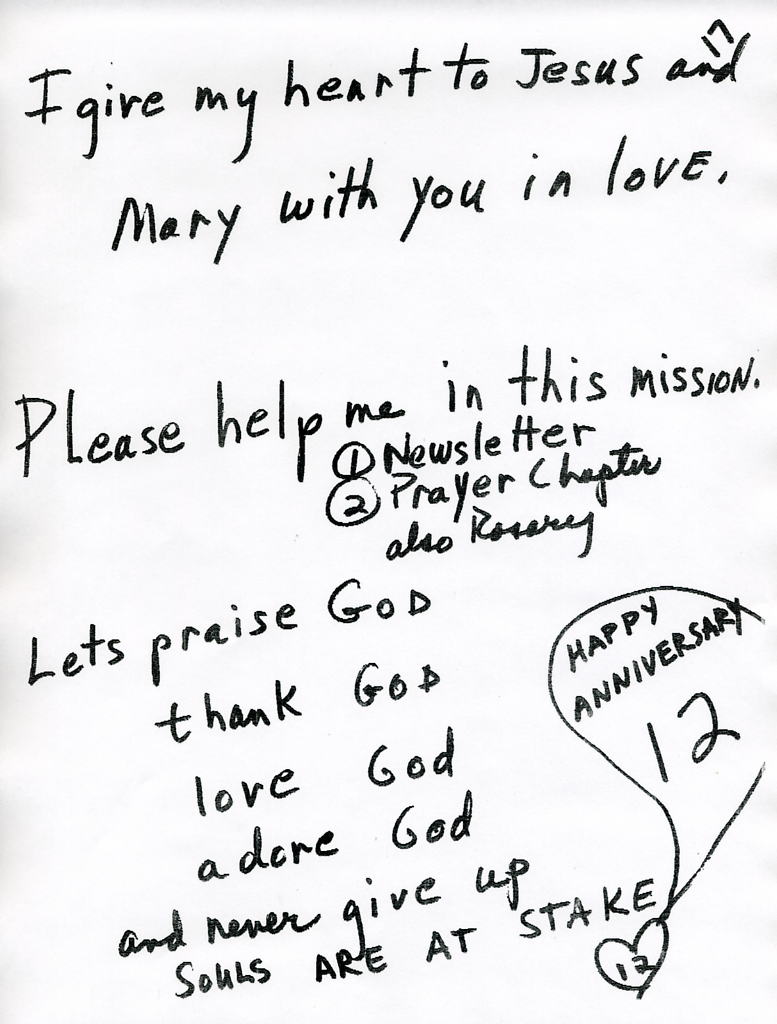 17
I give my heart to Jesus and
Mary with you in love.
Please help me in this mission.
① Newsletter
② Prayer Chapter
also Rosary
Lets praise GOD
thank GOD
love God
adore God
and never give up
SOULS ARE AT STAKE
HAPPY
ANNIVERSARY
12
12